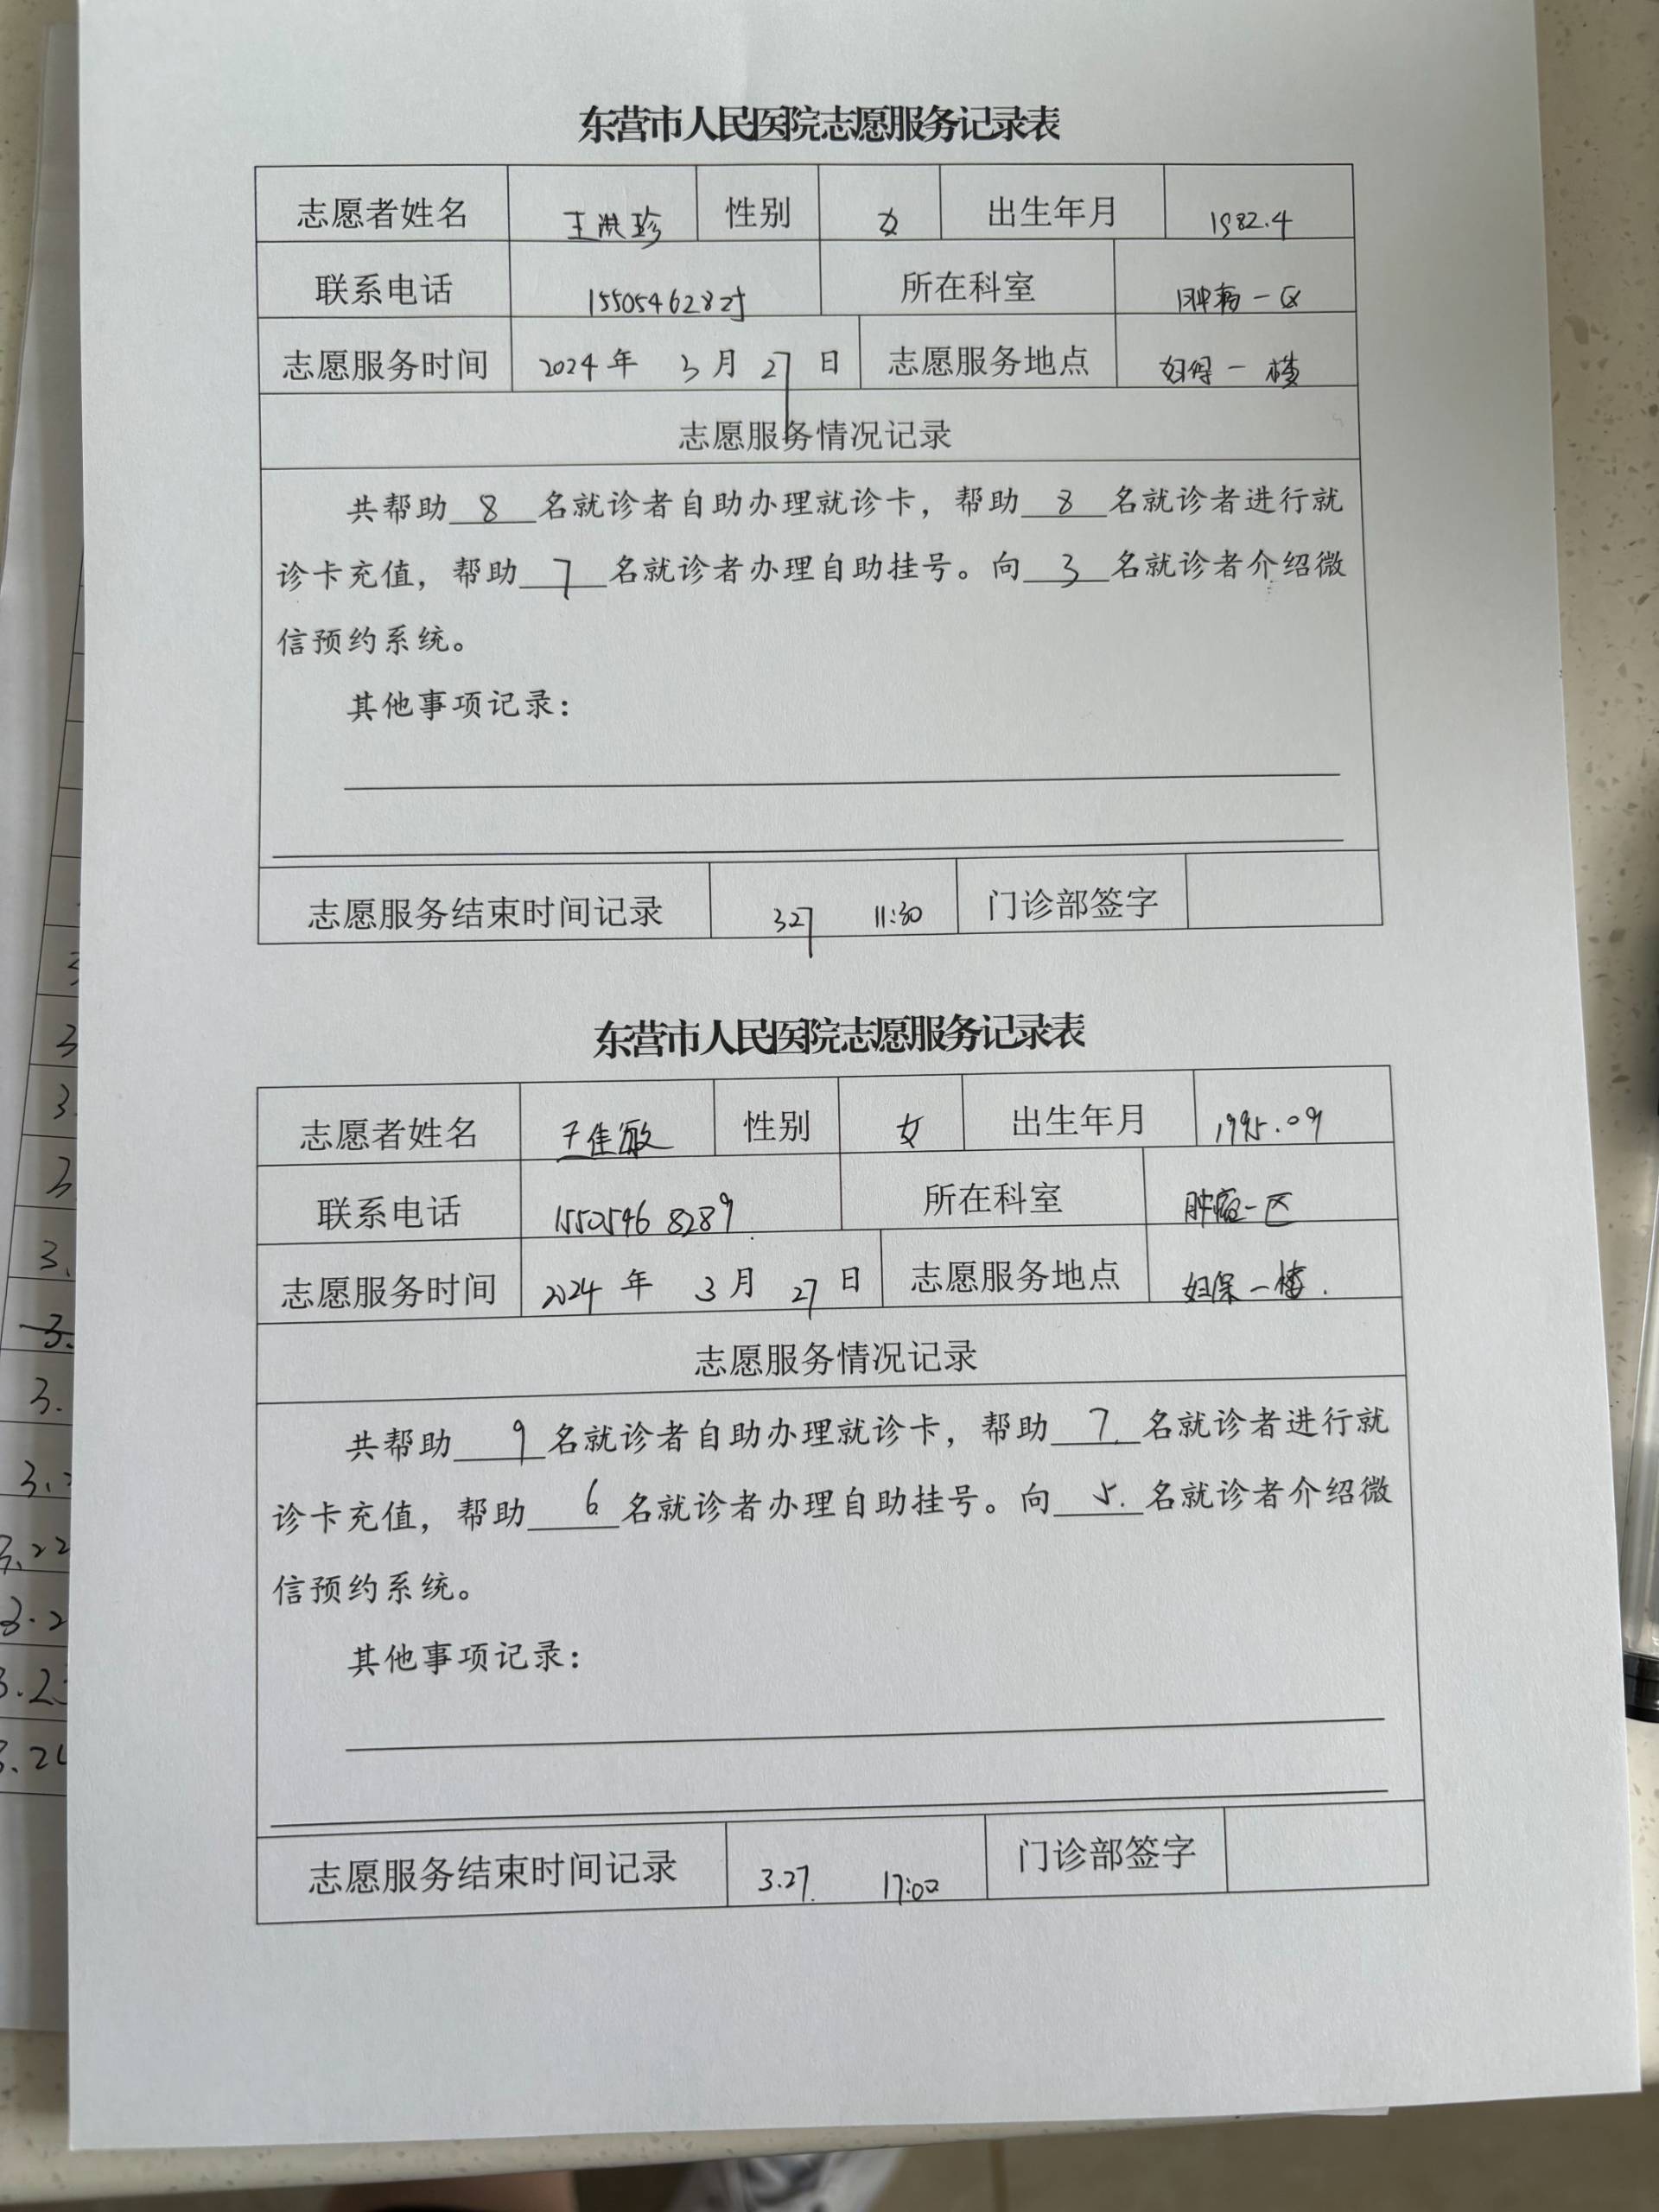 东营市人民医院志愿服务记录表
志愿者姓名 王洪珍 性别 女 出生年月 1982.4
联系电话 155054628 所在科室 肿瘤一区
志愿服务时间 2024年 3月27日 志愿服务地点 妇保一楼
志愿服务情况记录
共帮助 8 名就诊者自助办理就诊卡，帮助 8 名就诊者进行就
诊卡充值，帮助 7 名就诊者办理自助挂号。向 3 名就诊者介绍微
信预约系统。
其他事项记录：
志愿服务结束时间记录 327 11:30 门诊部签字
东营市人民医院志愿服务记录表
志愿者姓名 佳敏 性别 女 出生年月 1995.09
联系电话 15505468289 所在科室 肿瘤一区
志愿服务时间 2024年 3月27日 志愿服务地点 妇保一楼.
志愿服务情况记录
共帮助 9 名就诊者自助办理就诊卡，帮助 7. 名就诊者进行就
诊卡充值，帮助 6 名就诊者办理自助挂号。向 5. 名就诊者介绍微
信预约系统。
其他事项记录：
志愿服务结束时间记录 3.27. 17:00 门诊部签字
3.22
3.2
3.23
3.24